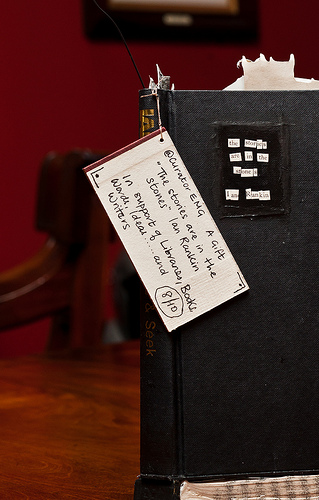 @CuratorEMG A Gift
"The stories are in the
stones" Ian Rankin
In support of Libraries, Books
Words, Ideas... and
Writers
8/10
the stories
are in the
stones
Ian Rankin
& Seek